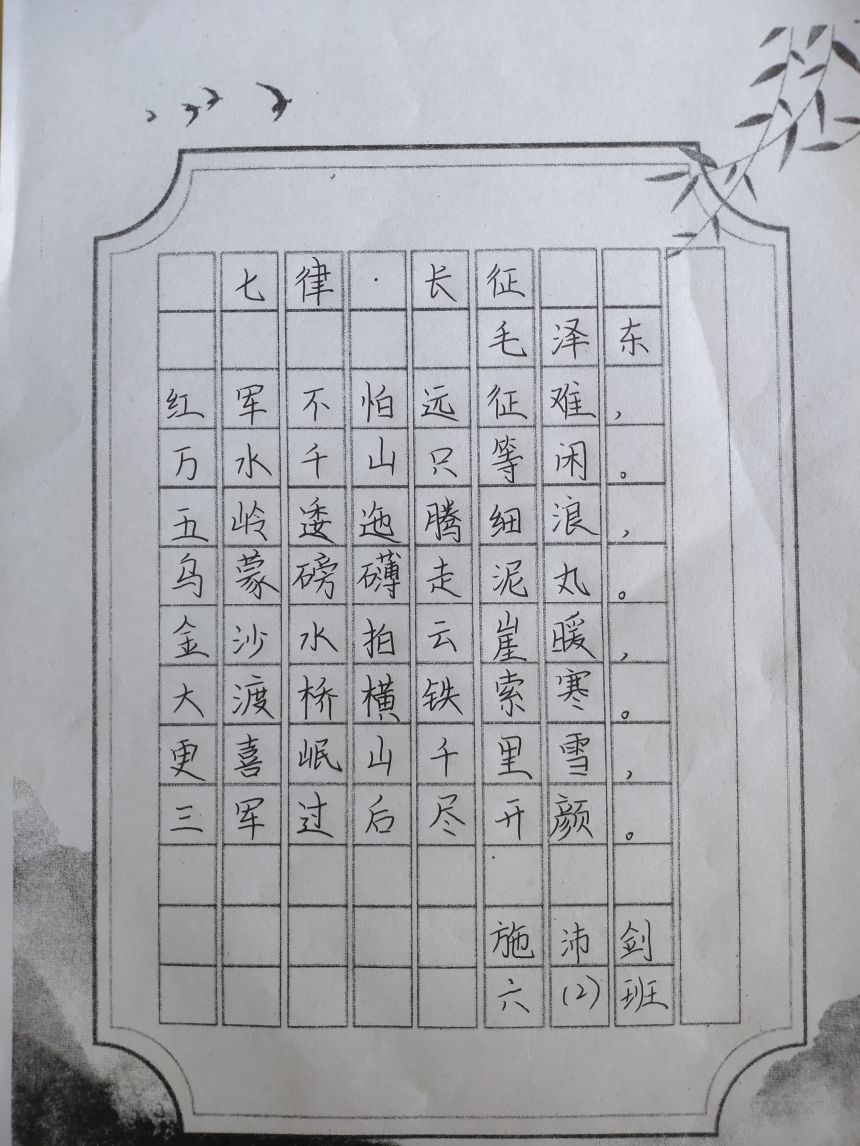 七律·长征
毛泽东
红军不怕远征难，
万水千山只等闲。
五岭逶迤腾细浪，
乌蒙磅礴走泥丸。
金沙水拍云崖暖，
大渡桥横铁索寒。
更喜岷山千里雪，
三军过后尽开颜。
施沛剑
六(2)班